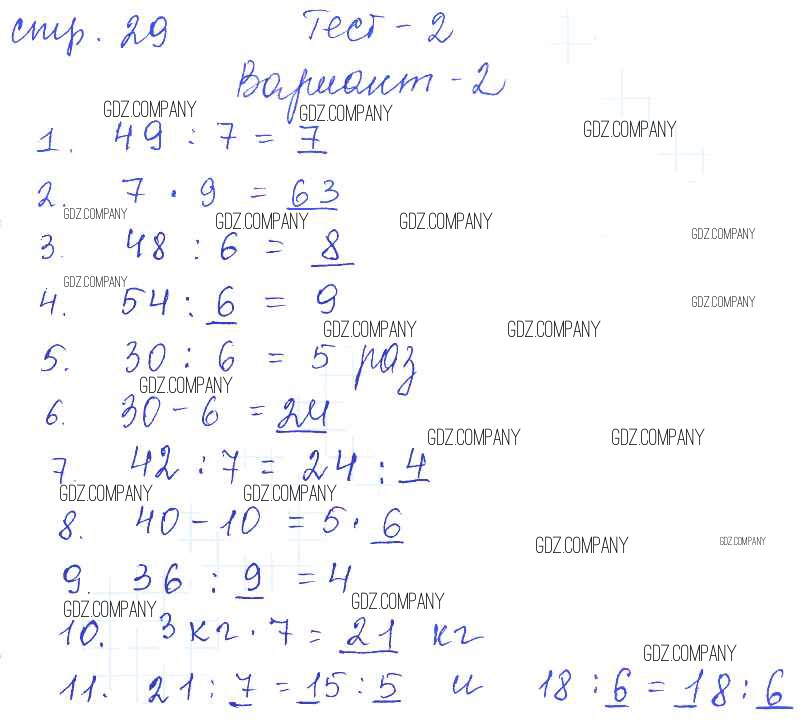 стр. 29 Тест - 2
Вариант - 2
GDZ.COMPANY GDZ.COMPANY GDZ.COMPANY
1. 49 : 7 = 7
2. 7 · 9 = 63
GDZ.COMPANY GDZ.COMPANY GDZ.COMPANY GDZ.COMPANY
3. 48 : 6 = 8
GDZ.COMPANY GDZ.COMPANY
4. 54 : 6 = 9
GDZ.COMPANY GDZ.COMPANY
5. 30 : 6 = 5 раз
GDZ.COMPANY
6. 30 - 6 = 24
GDZ.COMPANY GDZ.COMPANY
7. 42 : 7 = 24 : 4
GDZ.COMPANY GDZ.COMPANY
8. 40 - 10 = 5 · 6
GDZ.COMPANY GDZ.COMPANY
9. 36 : 9 = 4
GDZ.COMPANY GDZ.COMPANY
10. 3 кг · 7 = 21 кг
GDZ.COMPANY
11. 21 : 7 = 15 : 5 и 18 : 6 = 18 : 6